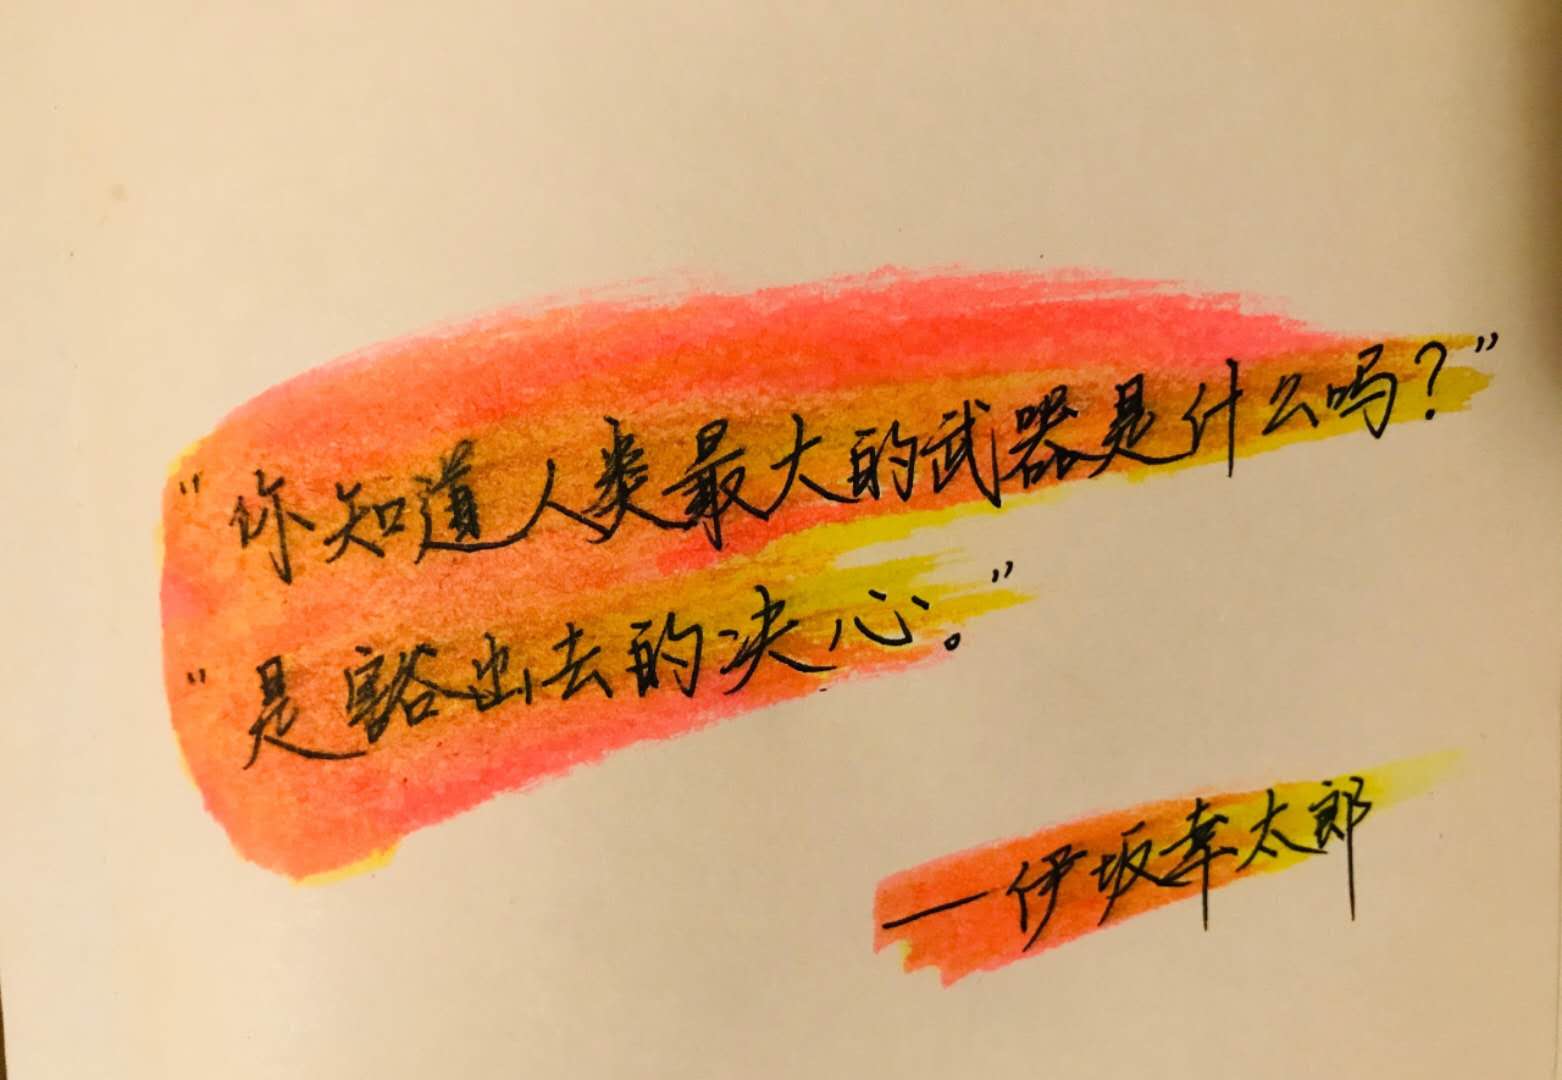 “你知道人类最大的武器是什么吗？”
“是豁出去的决心。”
—伊坂幸太郎